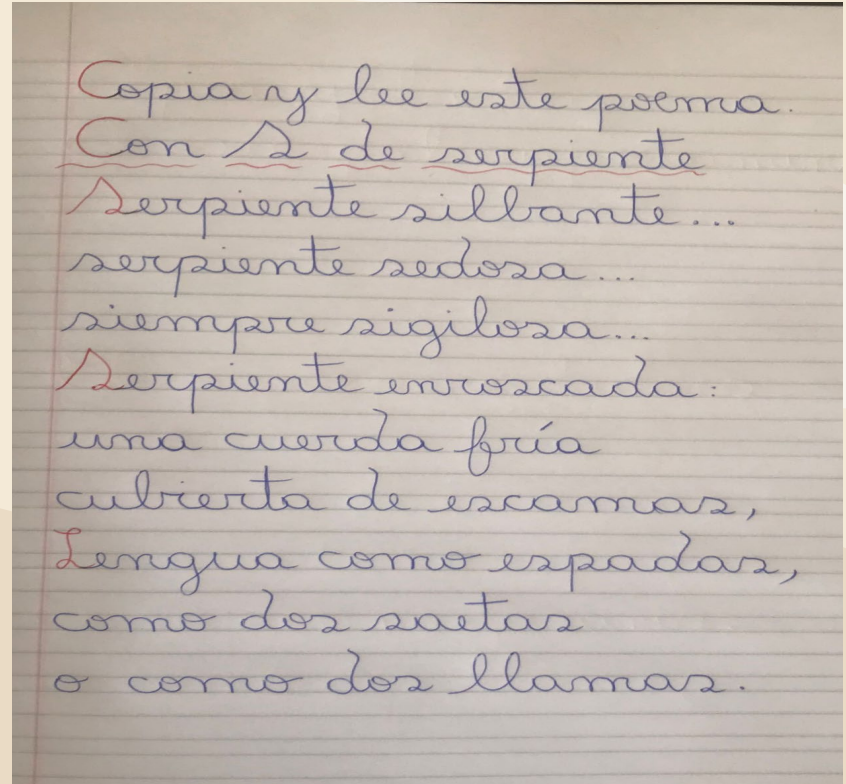 Copia y lee este poema.
Con S de serpiente
Serpiente silbante...
serpiente sedosa...
siempre sigilosa...
Serpiente enroscada:
una cuerda fría
cubierta de escamas,
Lengua como espadas,
como dos saetas
o como dos llamas.